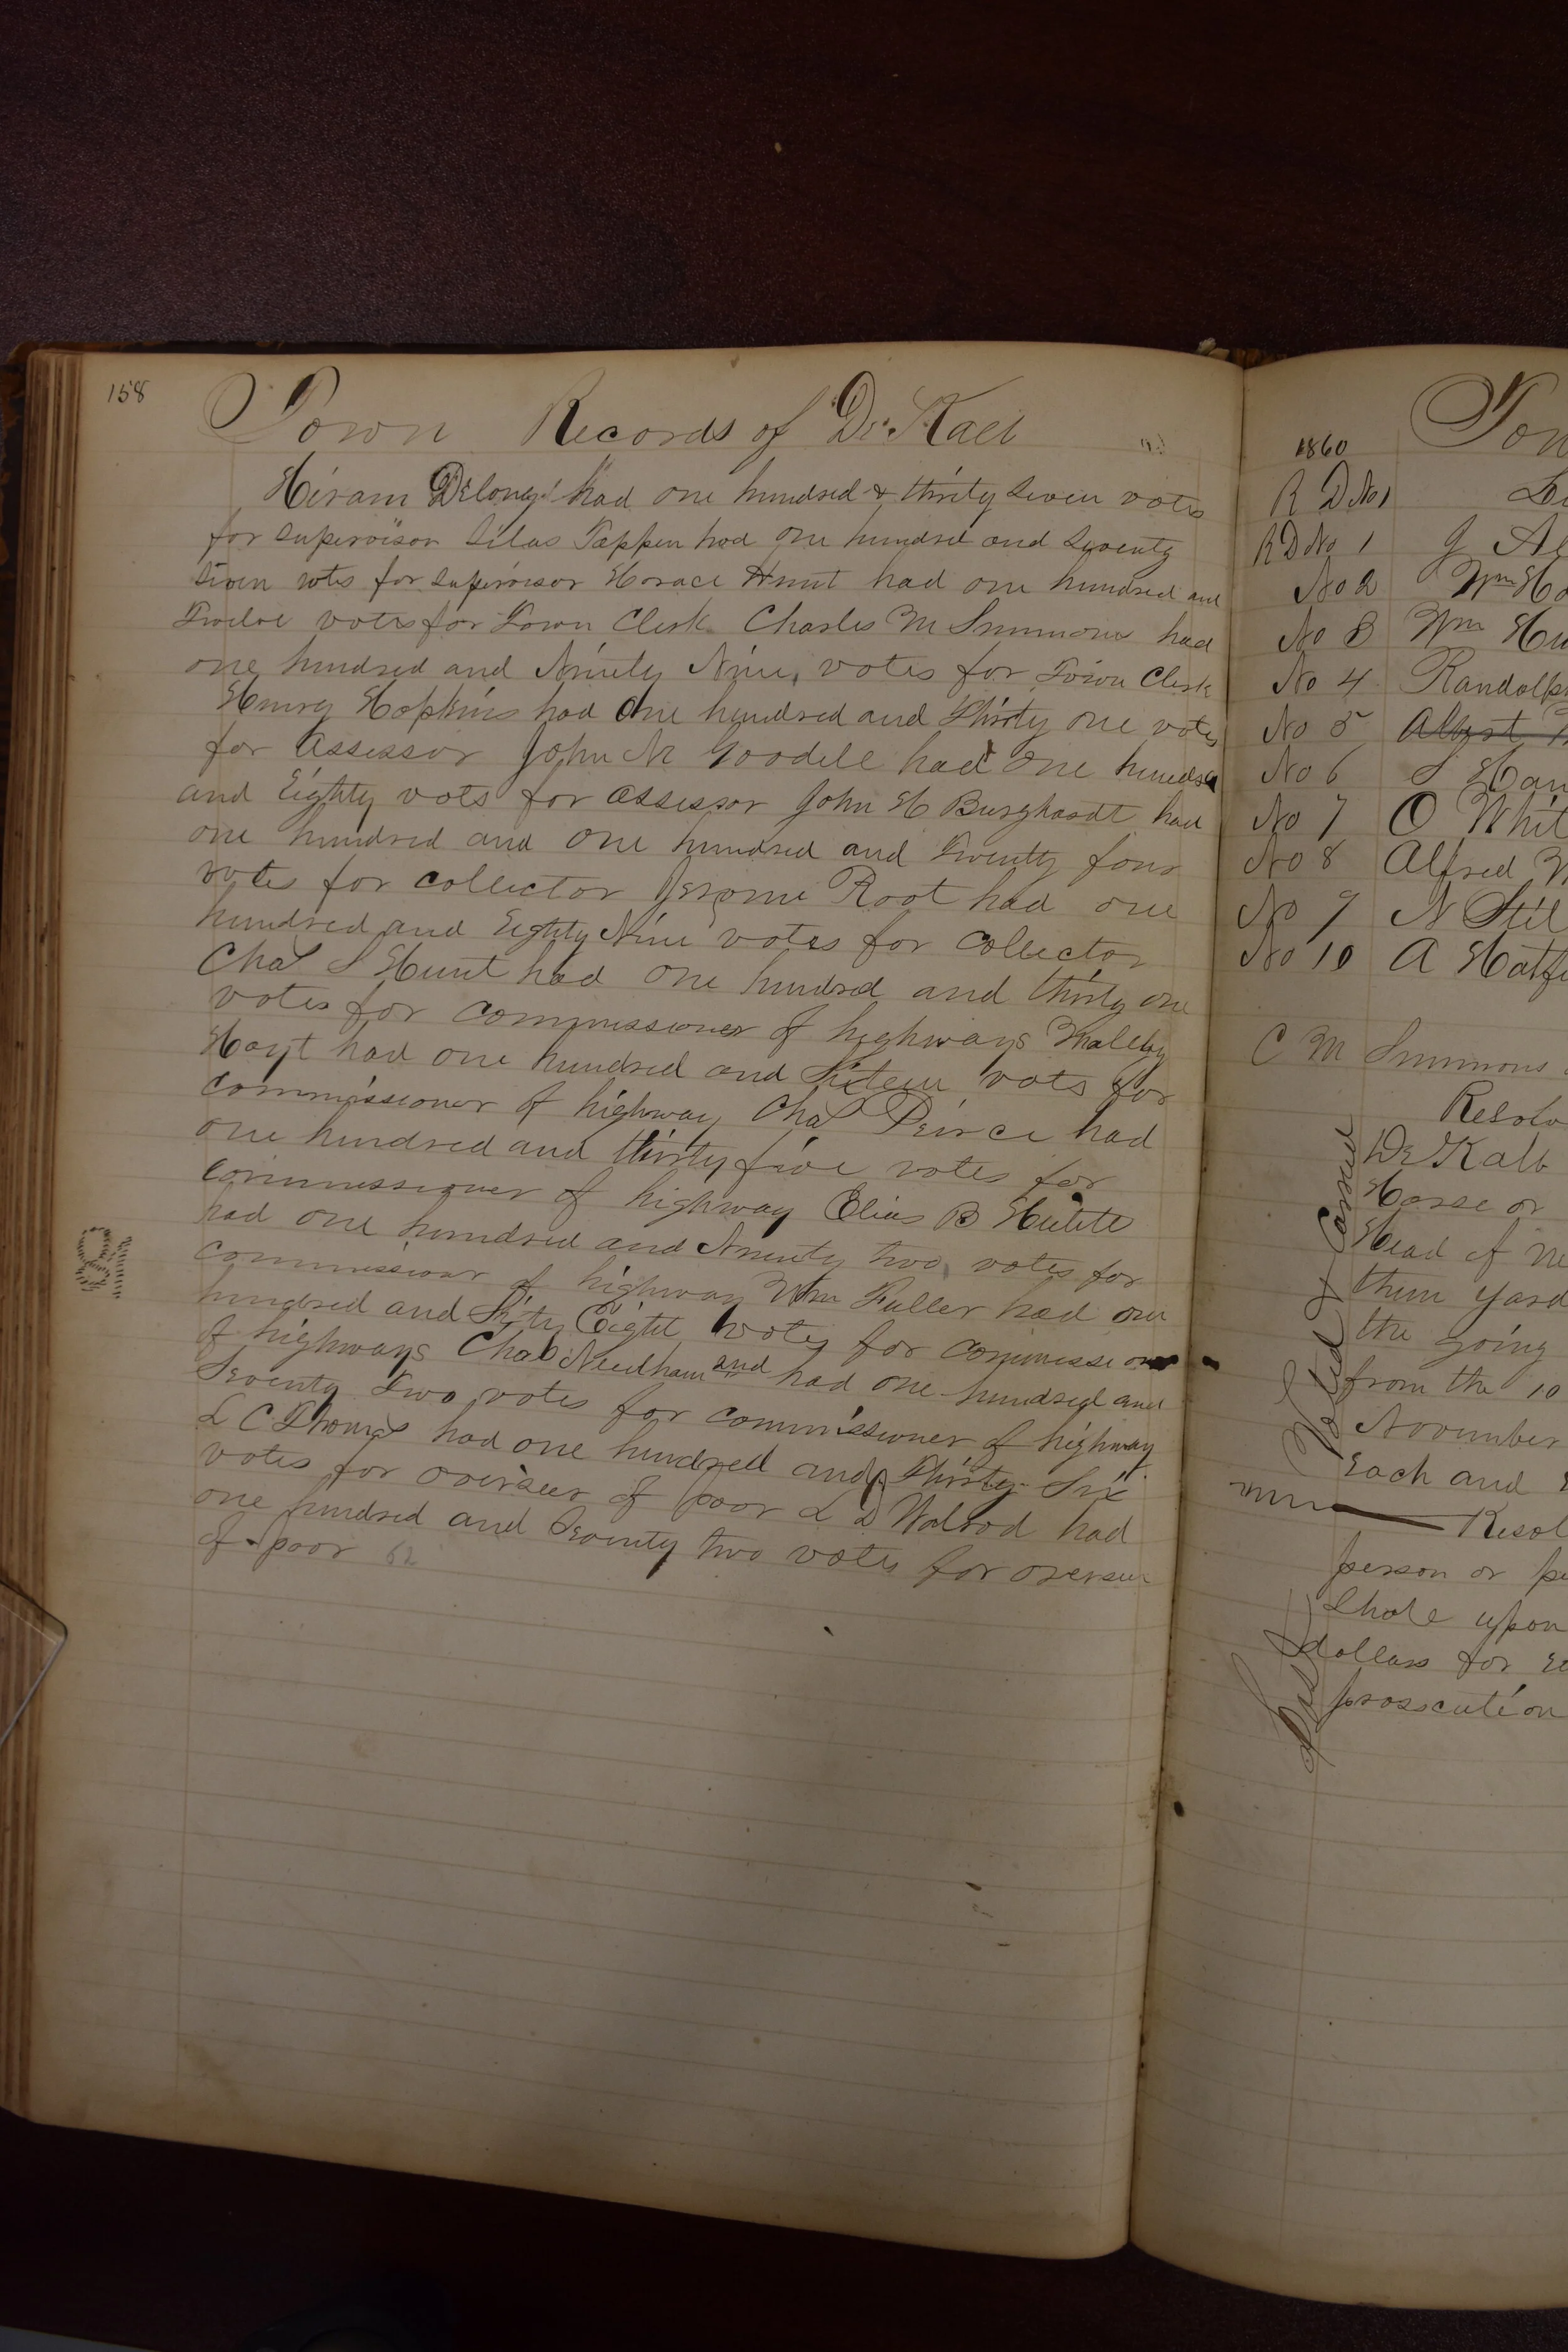 158
Town Records of De Kalb
Hiram Delong had one hundred & thirty Seven votes
for Supervisor Silas Tappen had one hundred and Seventy
Seven votes for Supervisor Horace Hunt had one hundred and
Twelve votes for Town Clerk Charles M Simmons had
one hundred and Ninety Nine votes for Town Clerk
Henry Hopkins had One hundred and Thirty one votes
for Assessor John N Goodell had One hundred
and Eighty vots for Assessor John H Burghardt had
one hundred and one hundred and Twenty four
votes for collector Jerome Root had one
hundred and Eighty Nine votes for Collector
Chas S Hunt had one hundred and thirty one
votes for commissioner of highways Maltby
Hoyt had one hundred and Sixteen vots for
commissioner of highway Chas Peirce had
one hundred and thirty five votes for
commissioner of highway Elias B
had one hundred and Ninety two votes for
commissioner of highway Wm Fuller had one
hundred and Sixty Eight votes for commissioner
of highways Chas Needham and had one hundred and
Seventy Two votes for commissioner of highway
L C Thomas had one hundred and Thirty Six
votes for overseer of poor L D Walrod had
one hundred and Seventy two votes for overseer
of poor 62
1860 Tow
R D No 1
R D No 1 J
No 2 Wm Ho
No 3 Wm Hu
No 4 Randolph
No 5 Albert
No 6 S Han
No 7 O Whit
No 8 Alfred W
No 9 N Stil
No 10 A Hatfi
C M Simmons
Resolv
De Kalb
Horse or
Head of
them yard
the going
from the 10
November
Each and
Resol
person or pe
Shole upon
dollars for
prosecution
Voted & Carried